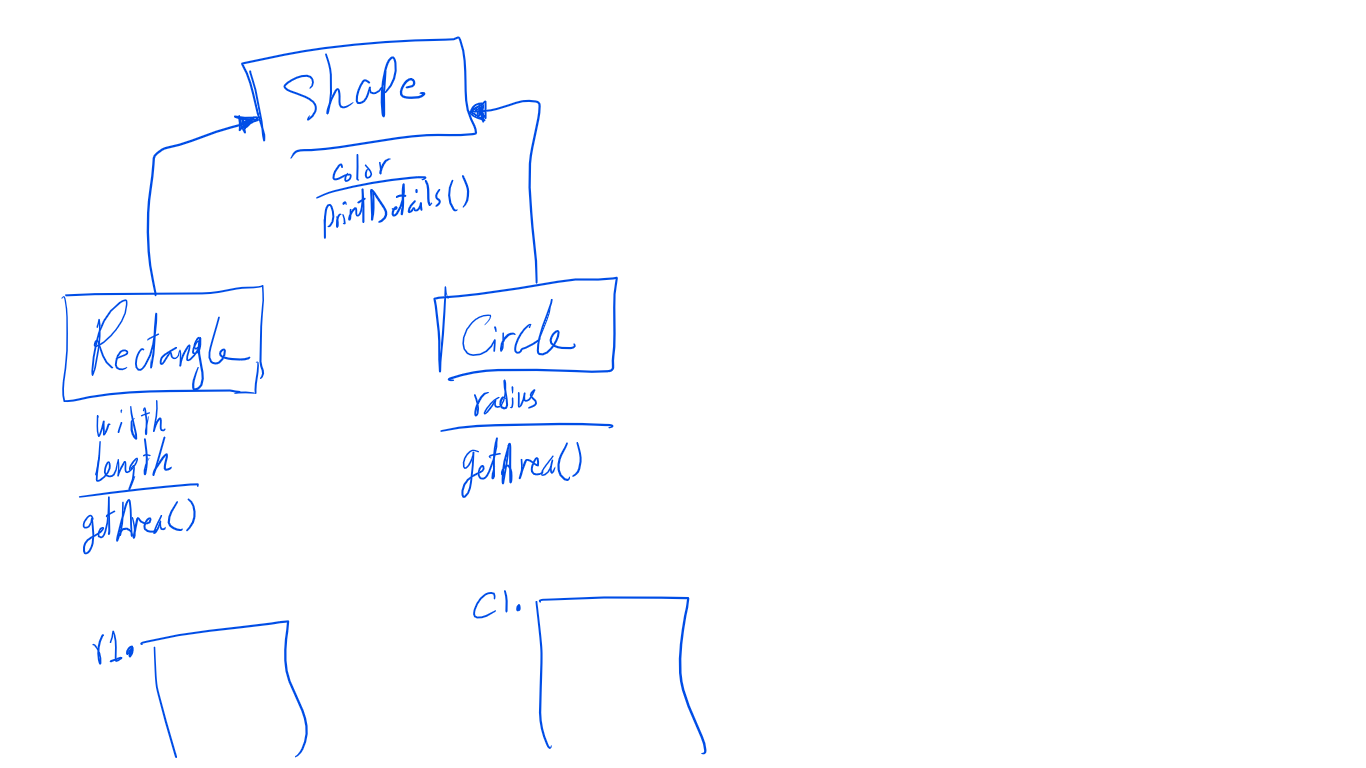 Shape
color
printDetails()
Rectangle
width
length
getArea()
Circle
radius
getArea()
r1.
C1.